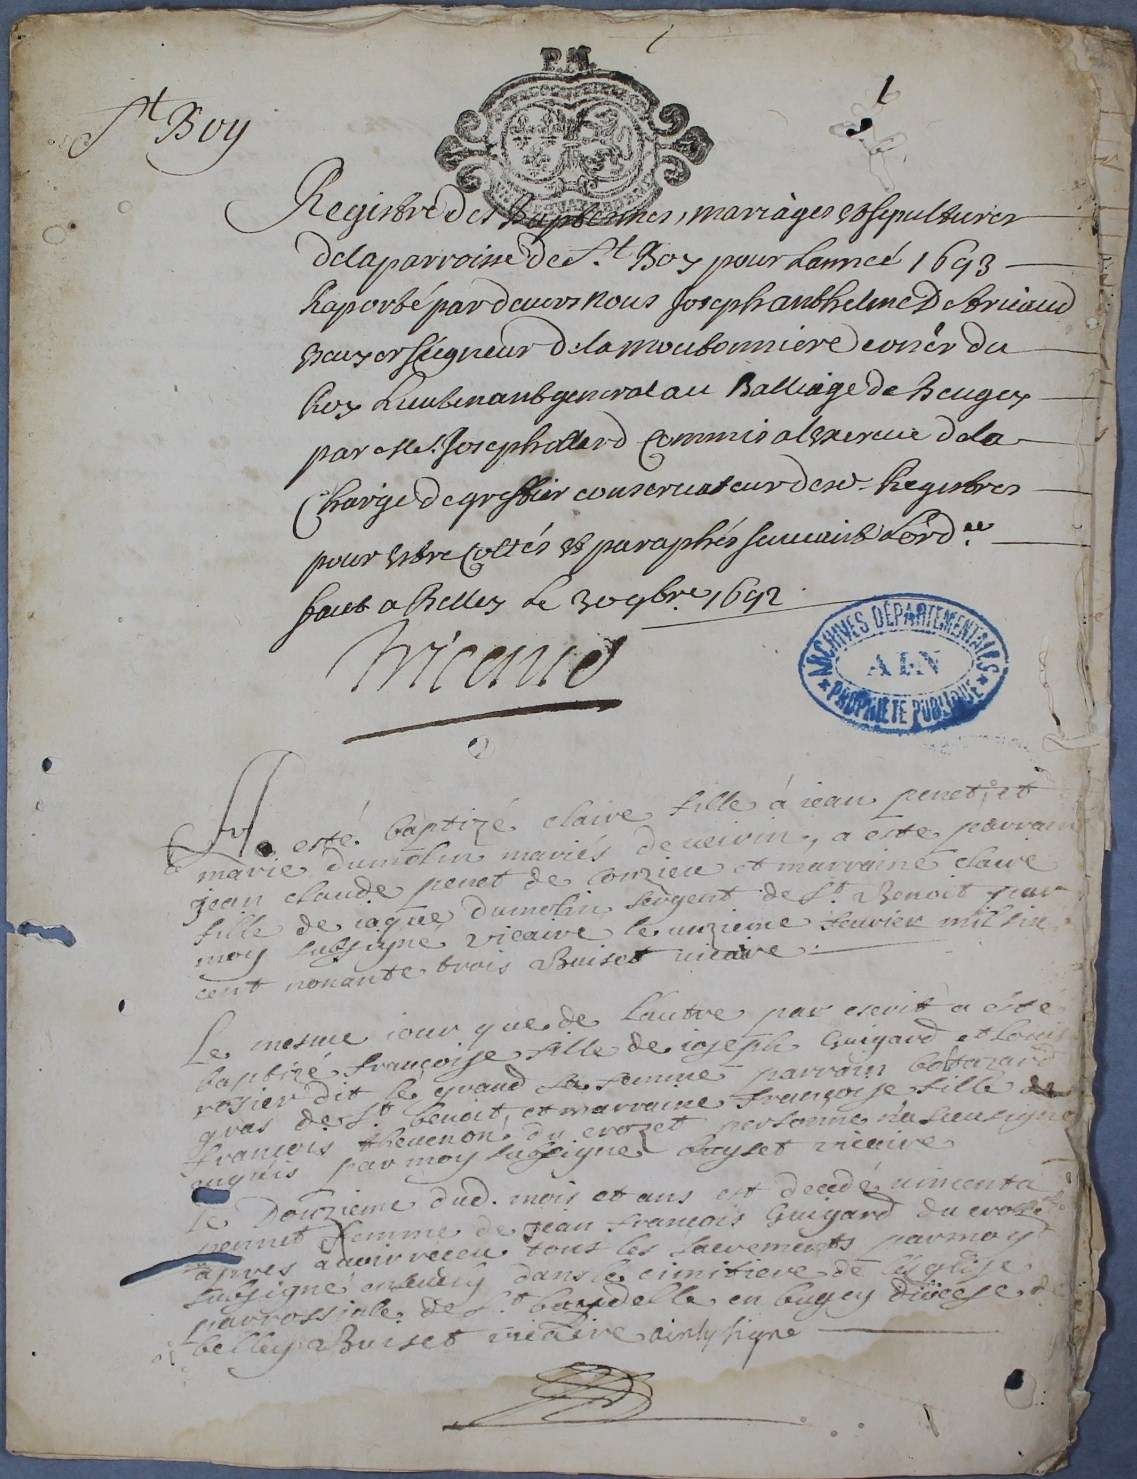 P.M.
St Boy
1
Registre des Baptesmes, mariàges et sepultures
de la parroisse de St. Boy pour Lannéé 1693
Raporté par devers nous Joseph anthelme De tricaud
Seigneur de la moutonniere coner du
Roy Lieutenant general au Balliage de Beugey
par Me. Joseph Commis a lexercice de la
Charge de greffier conservateur desd. Registres
pour estre Cottés et paraphés suivant Lord.ce
fait a Belley le 30 9bre. 1692
Tricaud
ARCHIVES DÉPARTEMENTALES
AIN
PROPRIÉTÉ PUBLIQUE
A esté baptizé claire fille á iean penet, et
marie dumolin mariés de veirin, a esté parrain
jean claude penet de conzieu et marraine claire
fille de iaque dumolin sergent de St. Benoit par
moy subsigné, vicaire le unzieme feurier mil six
cent nonante trois Buiset vicaire
Le mesme iour que de l'autre par escrit a esté
baptizé françoise fille de ioseph Guigard et
rosier dit le grand sa femme parrain
gras de St. benoit, et marraine françoise fille de
françois thevenon du crozet personne n'a sceu signé
enquis par moy subsigné buyset vicaire
Le Douzieme dud. mois et ans est decedé vincenta
pennet femme de Jean françois Guigard du crozet
apres avoir receu tous les sacrements par moy
subsigné dans le cimitiere de l'esglise
parrossiale de St. baudelle en bugey diocese de
belley Buiset vicaire ainsy signé